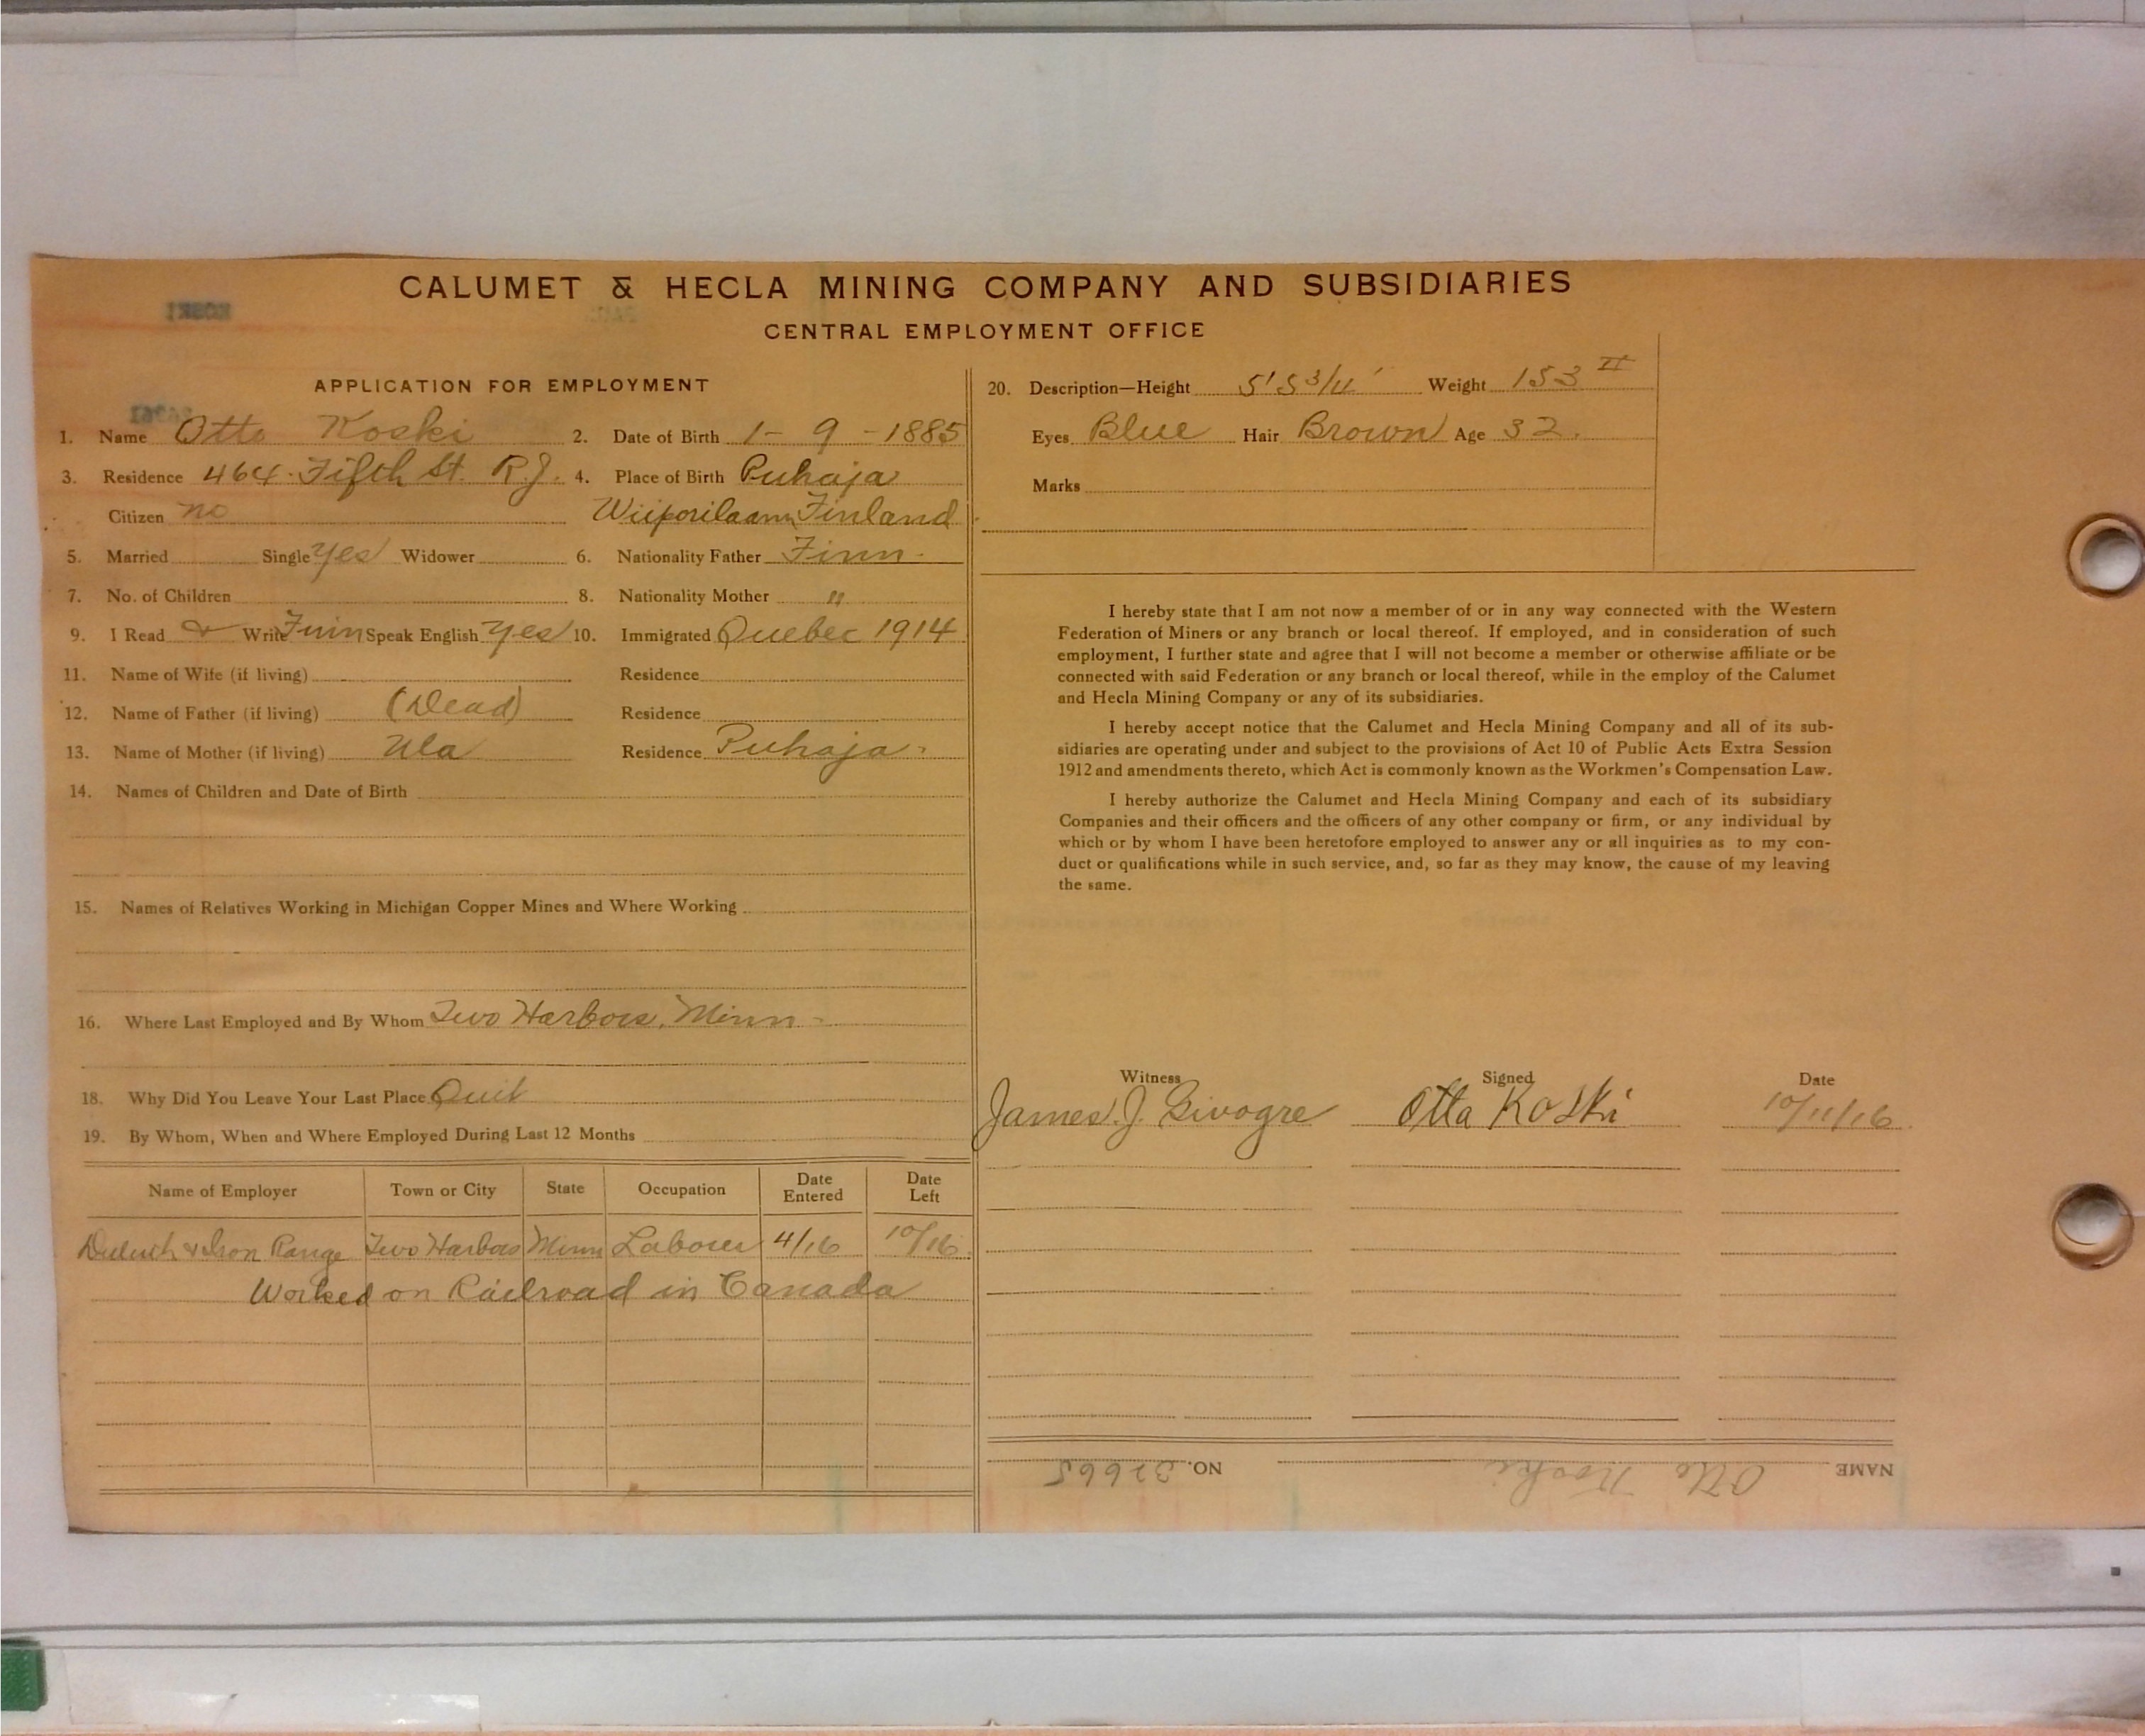 CALUMET & HECLA MINING COMPANY AND SUBSIDIARIES
CENTRAL EMPLOYMENT OFFICE
APPLICATION FOR EMPLOYMENT
1. Name Otto Koski 2. Date of Birth 1-9-1885
3. Residence 464 Fifth St. R.J. 4. Place of Birth Puhaja
Citizen no Wiiporilaann Finland
5. Married Single Yes Widower 6. Nationality Father Finn
7. No. of Children 8. Nationality Mother "
9. I Read & Write Finn Speak English Yes 10. Immigrated Quebec 1914
11. Name of Wife (if living) Residence
12. Name of Father (if living) (Dead) Residence
13. Name of Mother (if living) Ula Residence Puhaja
14. Names of Children and Date of Birth
15. Names of Relatives Working in Michigan Copper Mines and Where Working
16. Where Last Employed and By Whom Two Harbors, Minn
18. Why Did You Leave Your Last Place Quit
19. By Whom, When and Where Employed During Last 12 Months
Name of Employer Town or City State Occupation Date Entered Date Left
Duluth & Iron Range Two Harbors Minn Laborer 4/16 10/16
Worked on Railroad in Canada
20. Description—Height 5'5 3/4' Weight 153
Eyes Blue Hair Brown Age 32.
Marks
I hereby state that I am not now a member of or in any way connected with the Western
Federation of Miners or any branch or local thereof. If employed, and in consideration of such
employment, I further state and agree that I will not become a member or otherwise affiliate or be
connected with said Federation or any branch or local thereof, while in the employ of the Calumet
and Hecla Mining Company or any of its subsidiaries.
I hereby accept notice that the Calumet and Hecla Mining Company and all of its sub-
sidiaries are operating under and subject to the provisions of Act 10 of Public Acts Extra Session
1912 and amendments thereto, which Act is commonly known as the Workmen's Compensation Law.
I hereby authorize the Calumet and Hecla Mining Company and each of its subsidiary
Companies and their officers and the officers of any other company or firm, or any individual by
which or by whom I have been heretofore employed to answer any or all inquiries as to my con-
duct or qualifications while in such service, and, so far as they may know, the cause of my leaving
the same.
Witness Signed Date
James J. Otta Koski 10/11/16
NAME Otto Koski NO. 32665